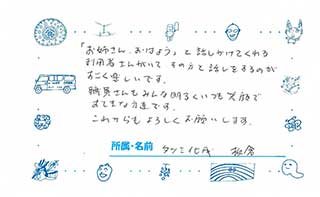 「お姉さん、おはよう」と話しかけてくれる
利用者さんがいて、その方と話しをするのが
すごく楽しいです。
職員さんもみんな明るくいつも笑顔で
すてきな方達です。
これからもよろしくお願いします。
所属・名前 タツミ化成